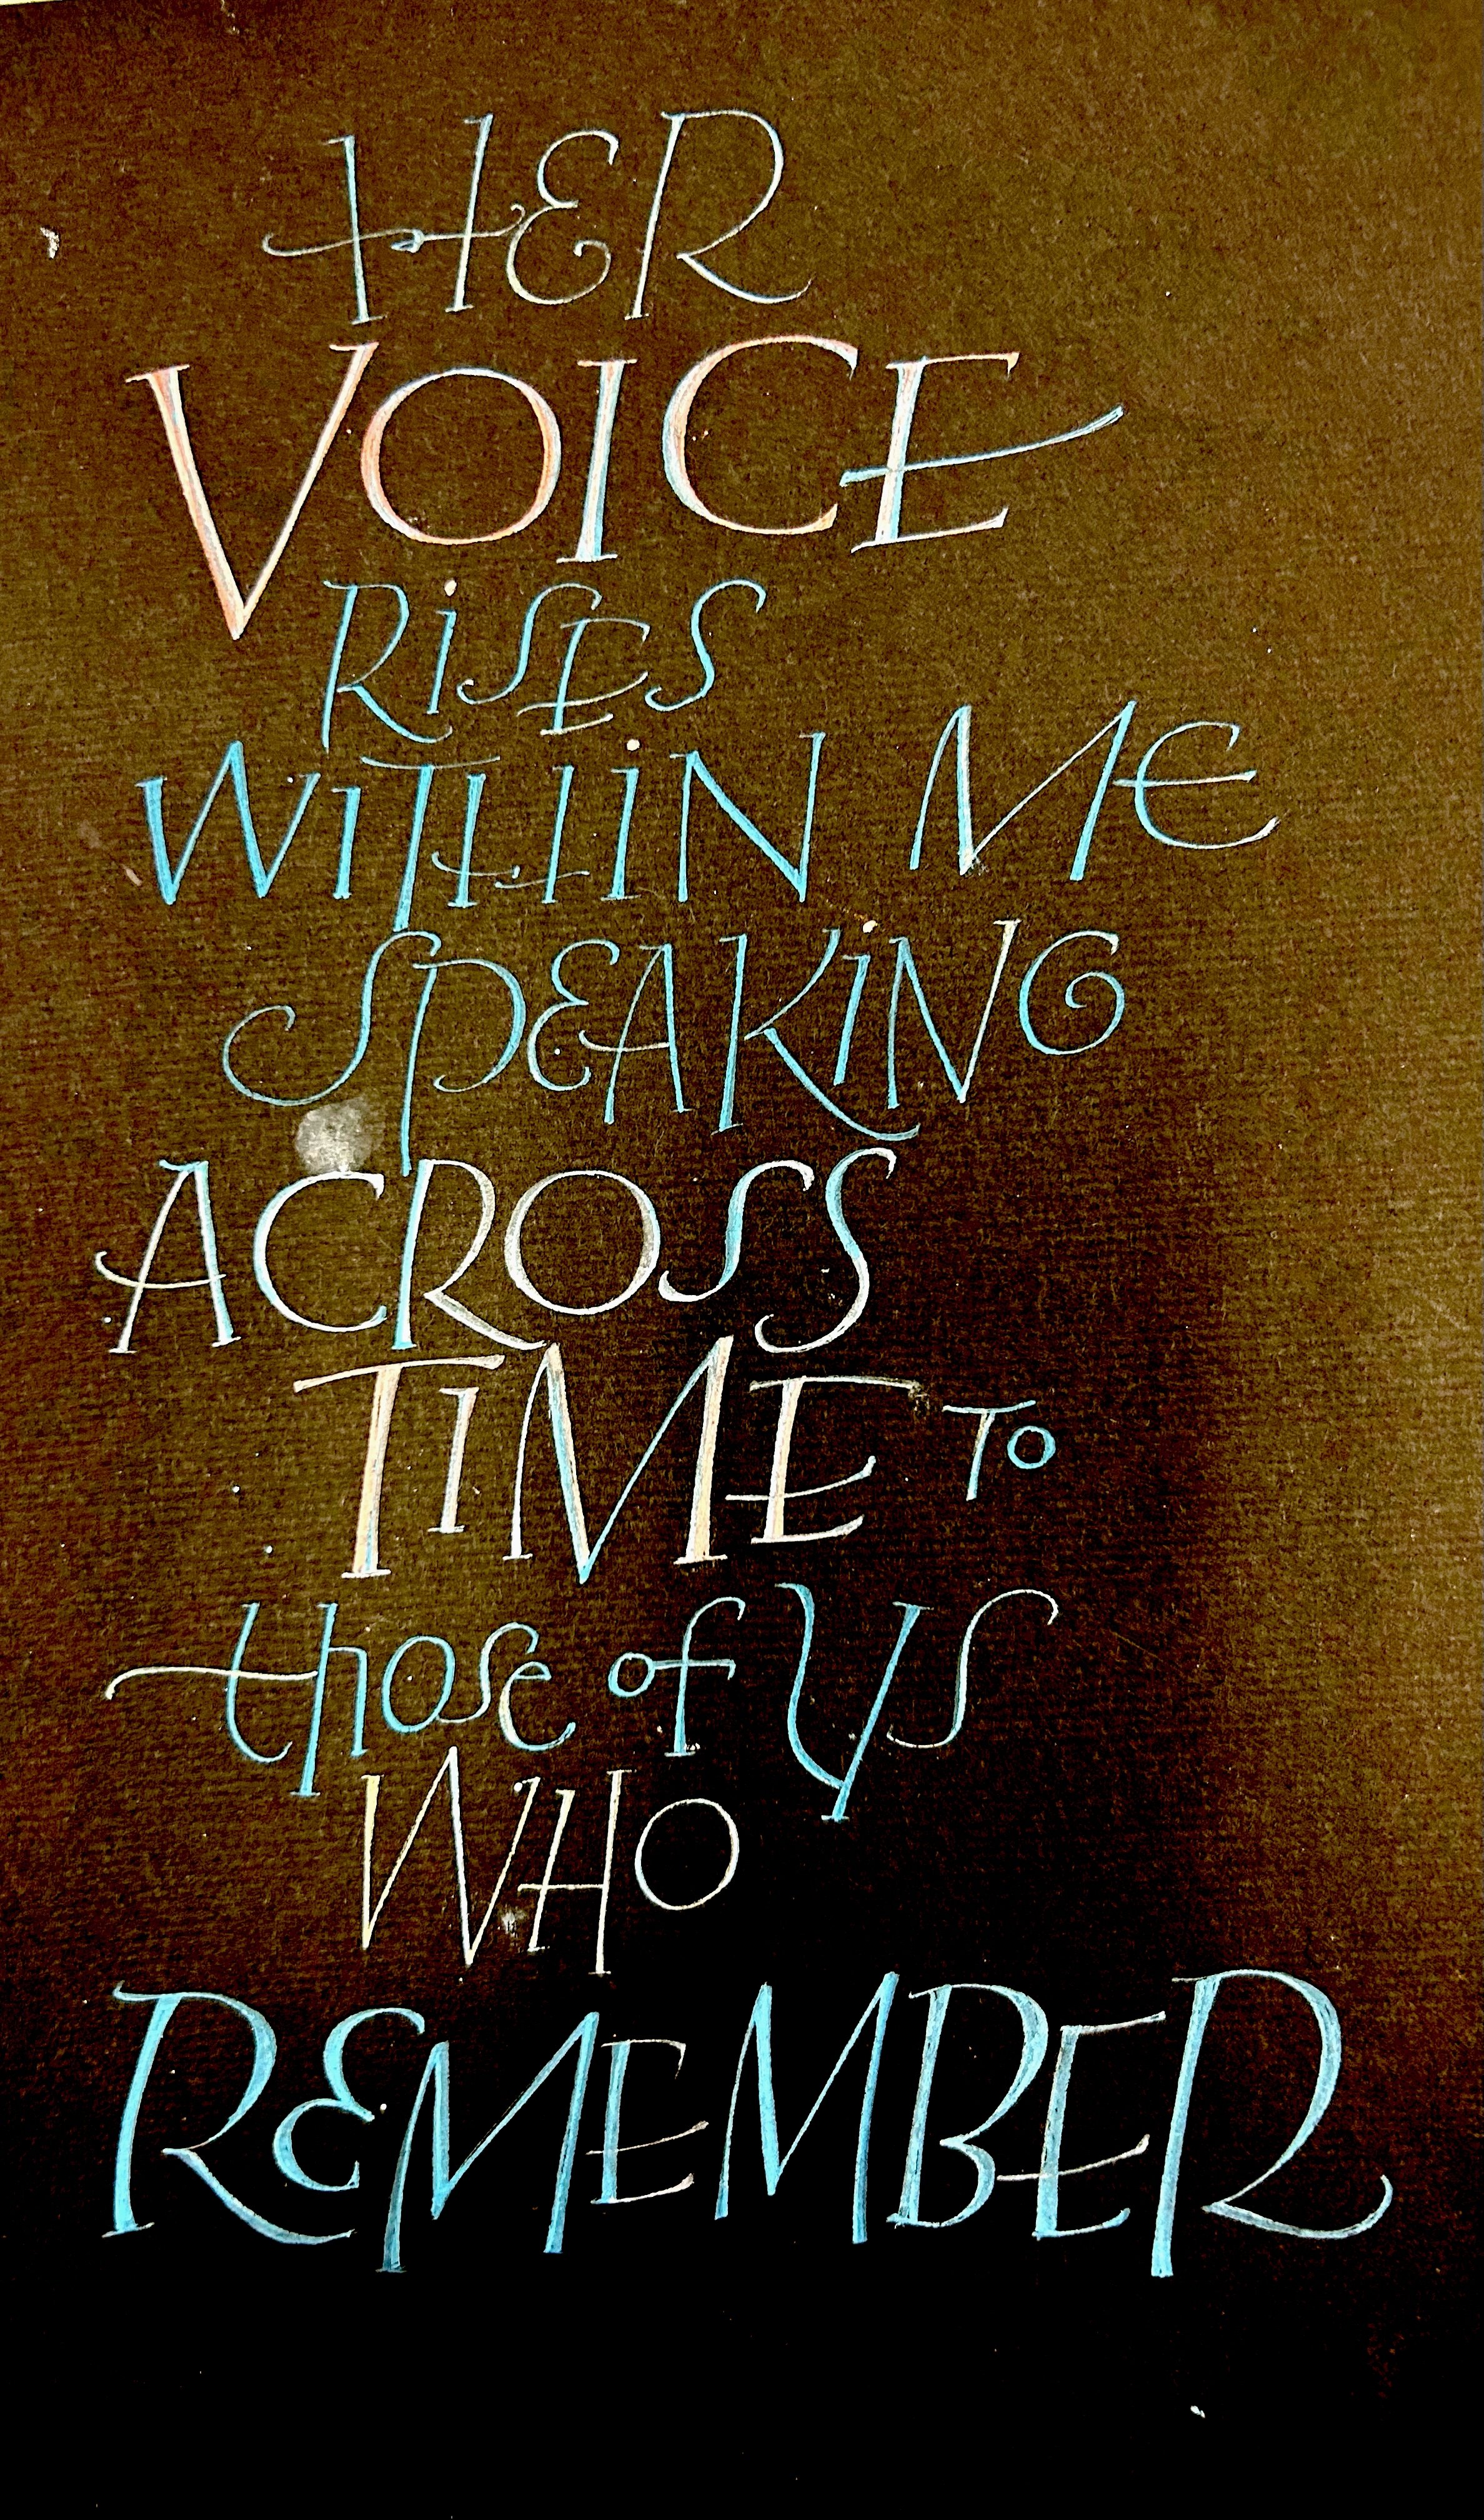 HER
VOICE
RiSES
WiTHiN ME
SPEAKiNG
ACROSS
TiME TO
those of US
WHO
REMEMBER